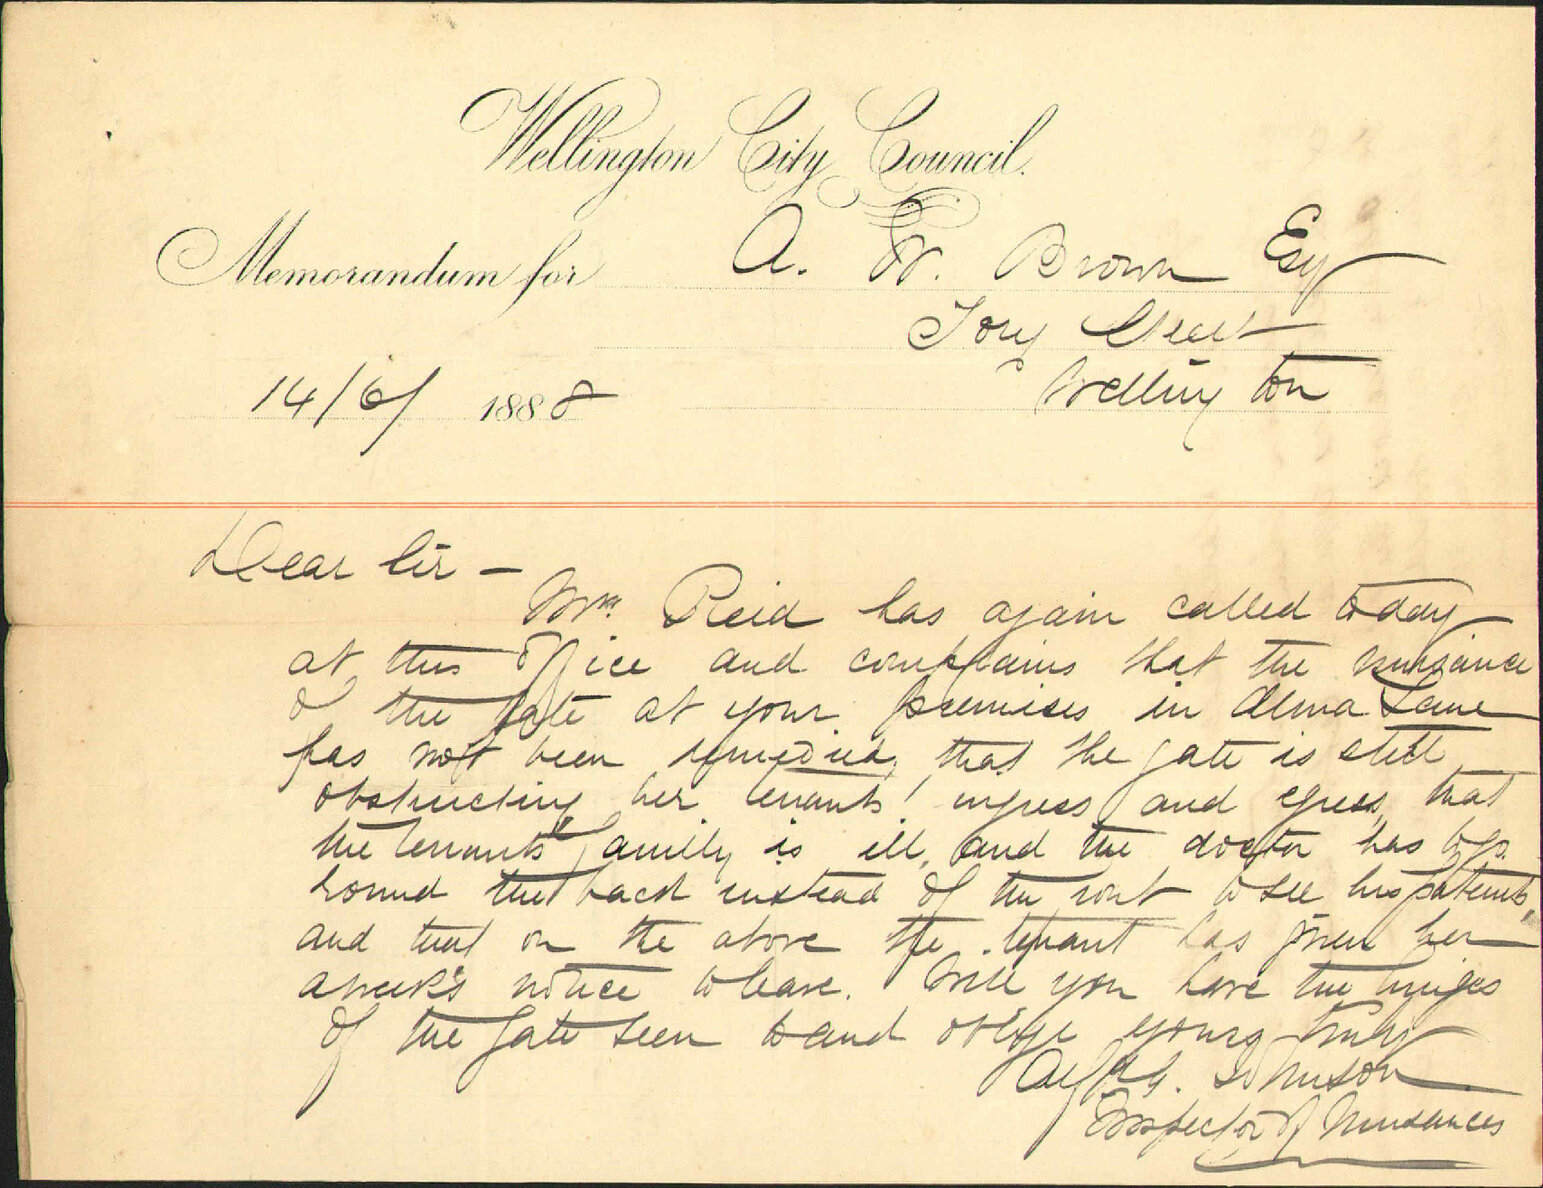 Wellington City Council.
Memorandum for A. W. Brown Esq
Tory Street
14/6/ 1888 Wellington
Dear Sir –
Mrs. Reid has again called today
at this office and complains that the nuisance
of the gate at your premises in Alma Lane
has not been remedied, that the gate is still
obstructing her tenants' ingress and egress, that
the tenants family is ill, and the doctor has to go
round the back instead of the front to see his patients,
and that on the above the tenant has given her
a week's notice to leave. Will you have the hinges
of the gate seen to and oblige yours truly
Johnson
Inspector of Nuisances